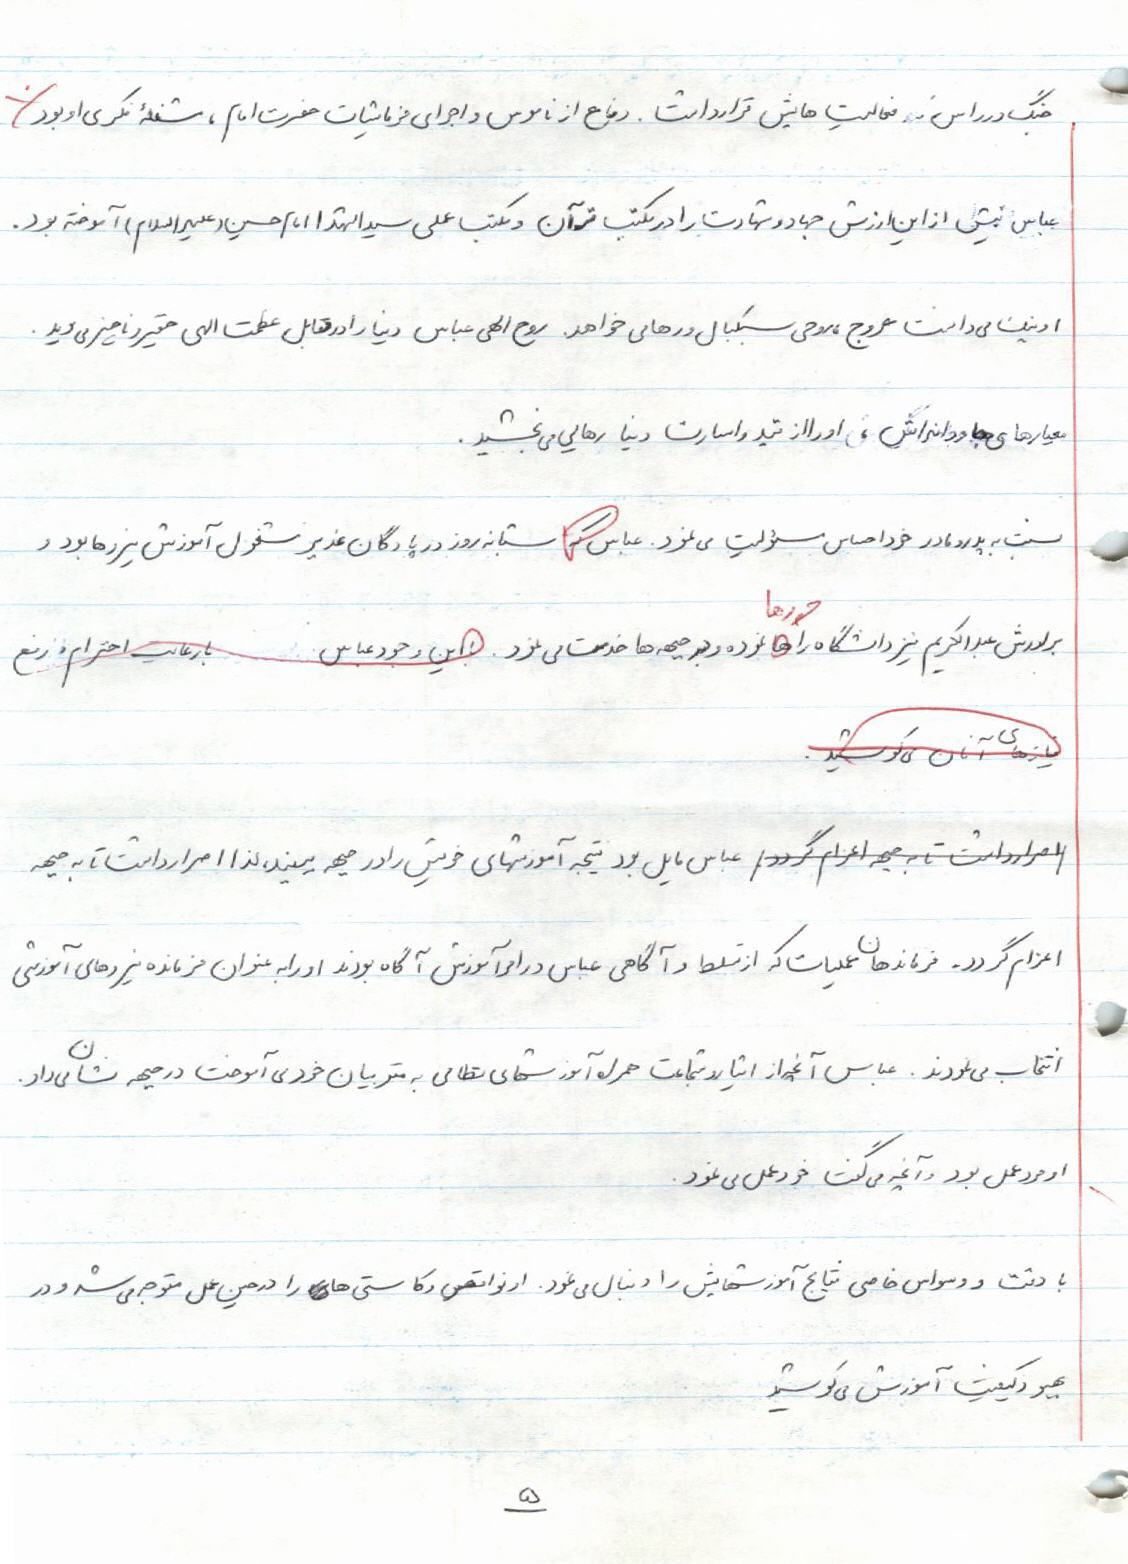 جنگ در راس فعالیت هایش قرار داشت . دفاع از ناموس و اجرای فرمائیات حضرت امام ، مشغلهٔ فکری او بود .
عباس بینش از این ارزش جهاد و شهادت را در مکتب قرآن و مکتب عملی سید الشهدا امام حسین (علیه السلام) آموخته بود .
او می دانست عروج روحی سبکبال و رهایی خواهد. روح الهی عباس دنیا را در مقابل عظمت الهی حقیر و ناچیز می دید .
معیارهای او را از قید و اسارت دنیا رهایی می بخشید .
نسبت به پدر و مادر خود احساس مسؤلیت می نمود . عباس که شبانه روز در پادگان غدیر مشغول آموزش نیروها بود و
برادرش عبدالکریم نیز دانشگاه را رها نموده و در جبهه ها خدمت می نمود . با این وجود عباس با رعایت احترام در رفع
نیازهای آنان می کوشید .
اصرار داشت تا به جبهه اعزام گردد عباس مایل بود نتیجه آموزشهای خویش را در جبهه ببیند، لذا اصرار داشت تا به جبهه
اعزام گردد . فرماندهان عملیات که از تسلط و آگاهی عباس در امر آموزش آگاه بودند او را به عنوان فرمانده نیروهای آموزشی
انتخاب می نمودند . عباس آنچه از ایثار و شجاعت همراه آموزشهای نظامی به متربیان خود می آموخت در جبهه نشان می داد .
او مرد عمل بود و آنچه می گفت خود عمل می نمود .
با دقت و وسواس خاصی نتایج آموزشهایش را دنبال می نمود . او نواقص و کاستی های را در حین عمل متوجه می شد و در
بهبود کیفیت آموزش می کوشید
۵